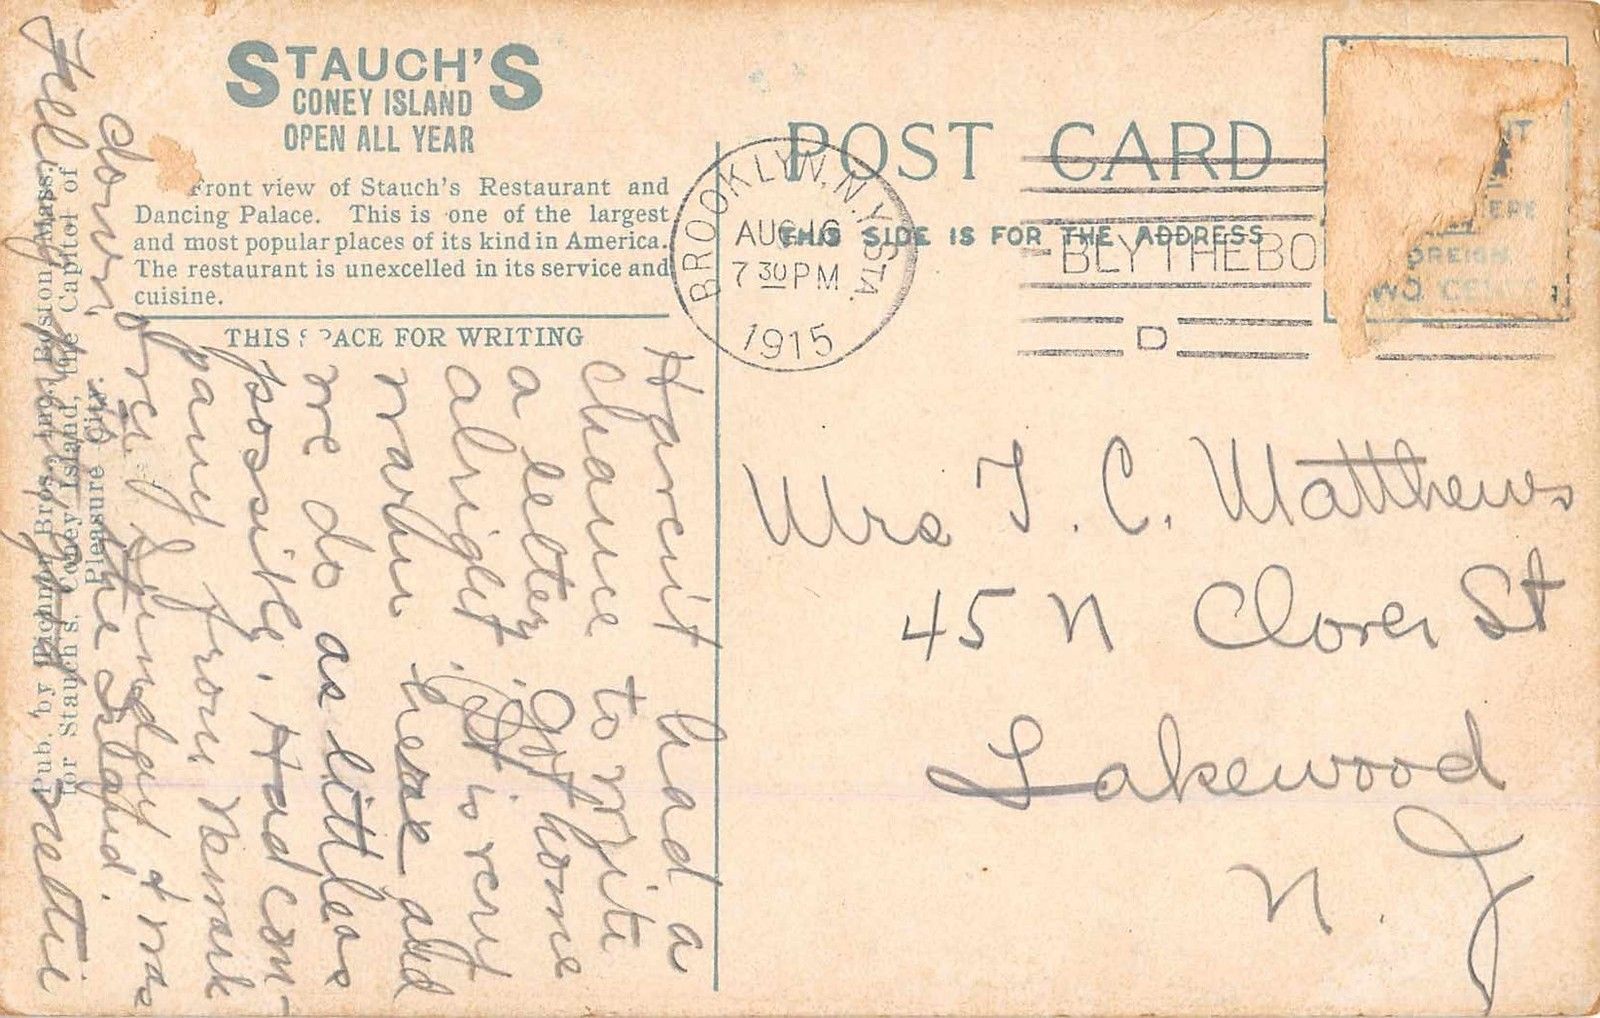 STAUCH'S
CONEY ISLAND
OPEN ALL YEAR
Front view of Stauch's Restaurant and
Dancing Palace. This is one of the largest
and most popular places of its kind in America.
The restaurant is unexcelled in its service and
cuisine.
THIS SPACE FOR WRITING
Havent had a
chance to write
a letter. Got home
alright. It is very
warm here and
we do as little as
possible. Had com-
pany from Newark
over Sunday & was
down to the Island.
Feeling pretty
Nettie
Pub. by Tichnor Bros., Inc., Boston, Mass.,
for Stauch's, Coney Island, the Capitol of
Pleasure City.
POST CARD
THIS SIDE IS FOR THE ADDRESS
BROOKLYN, N.Y. STA.
AUG 16
7 30 PM
1915
BLYTHEBO
D
FOREIGN
TWO CENTS
Mrs T. C. Matthews
45 N Clover St
Lakewood
N. J